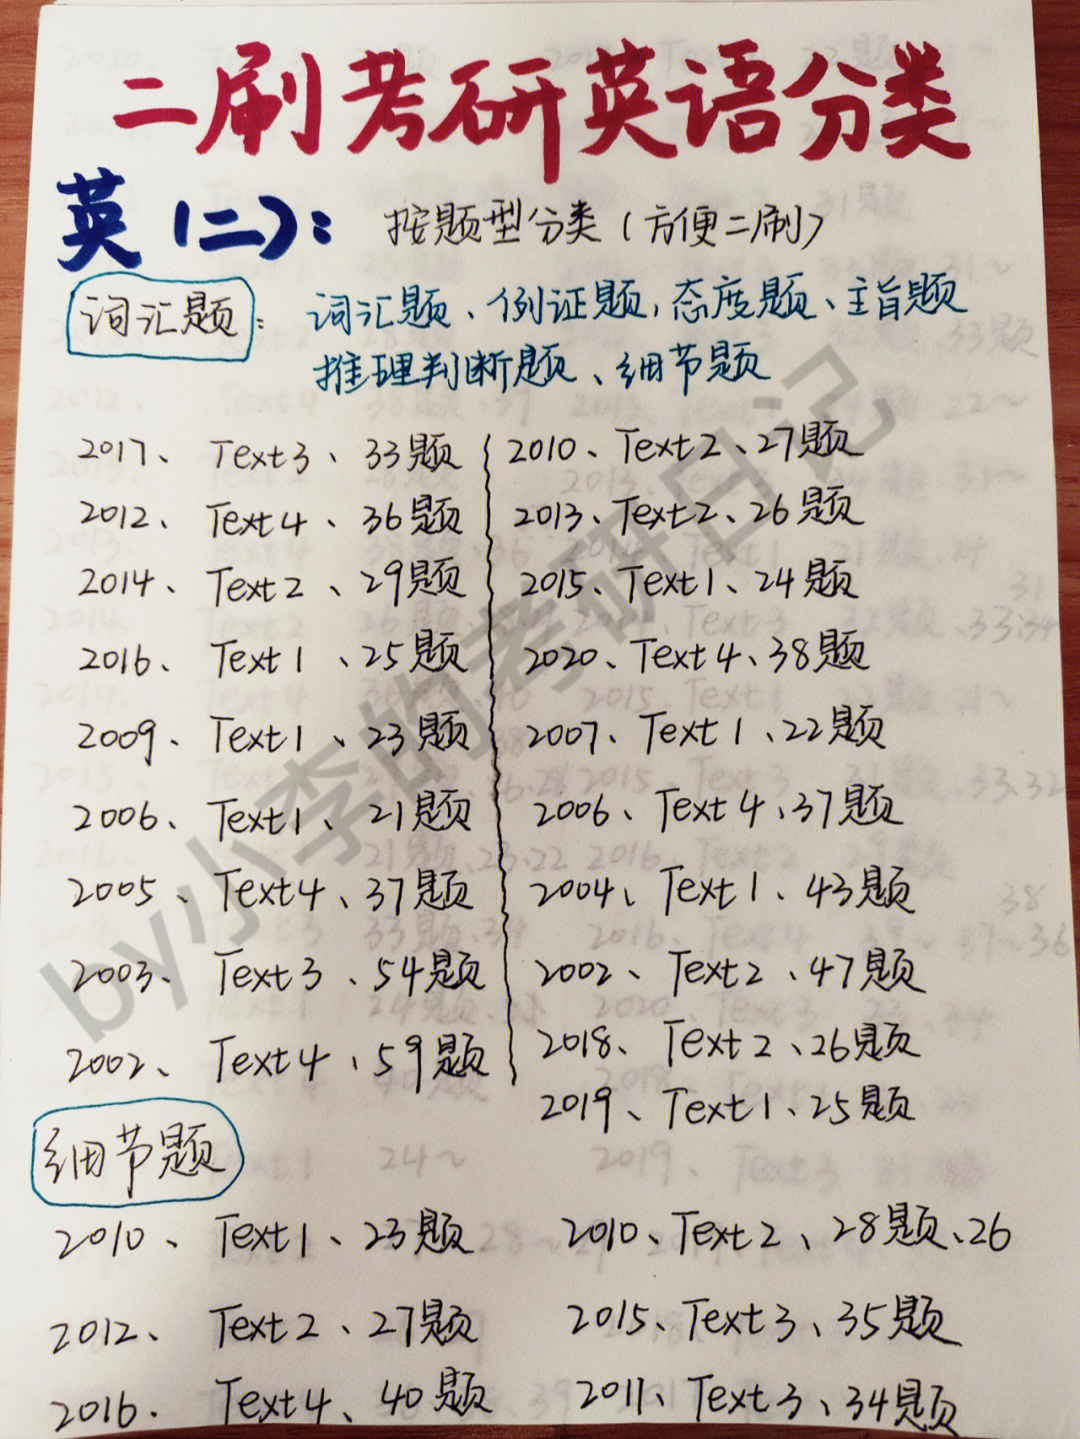 二刷考研英语分类
英(二):按题型分类(方便二刷)
词汇题:词汇题、例证题,态度题、主旨题
推理判断题、细节题
2017、Text3、33题
2012、Text4、36题
2014、Text2、29题
2016、Text1、25题
2009、Text1、23题
2006、Text1、21题
2005、Text4、37题
2003、Text3、54题
2002、Text4、59题
2010、Text2、27题
2013、Text2、26题
2015、Text1、24题
2020、Text4、38题
2007、Text1、22题
2006、Text4、37题
2004、Text1、43题
2002、Text2、47题
2018、Text2、26题
2019、Text1、25题
细节题
2010、Text1、23题 2010、Text2、28题、26
2012、Text2、27题 2015、Text3、35题
2016. Text4、40题 2011、Text3、34题
by小李的考研日记